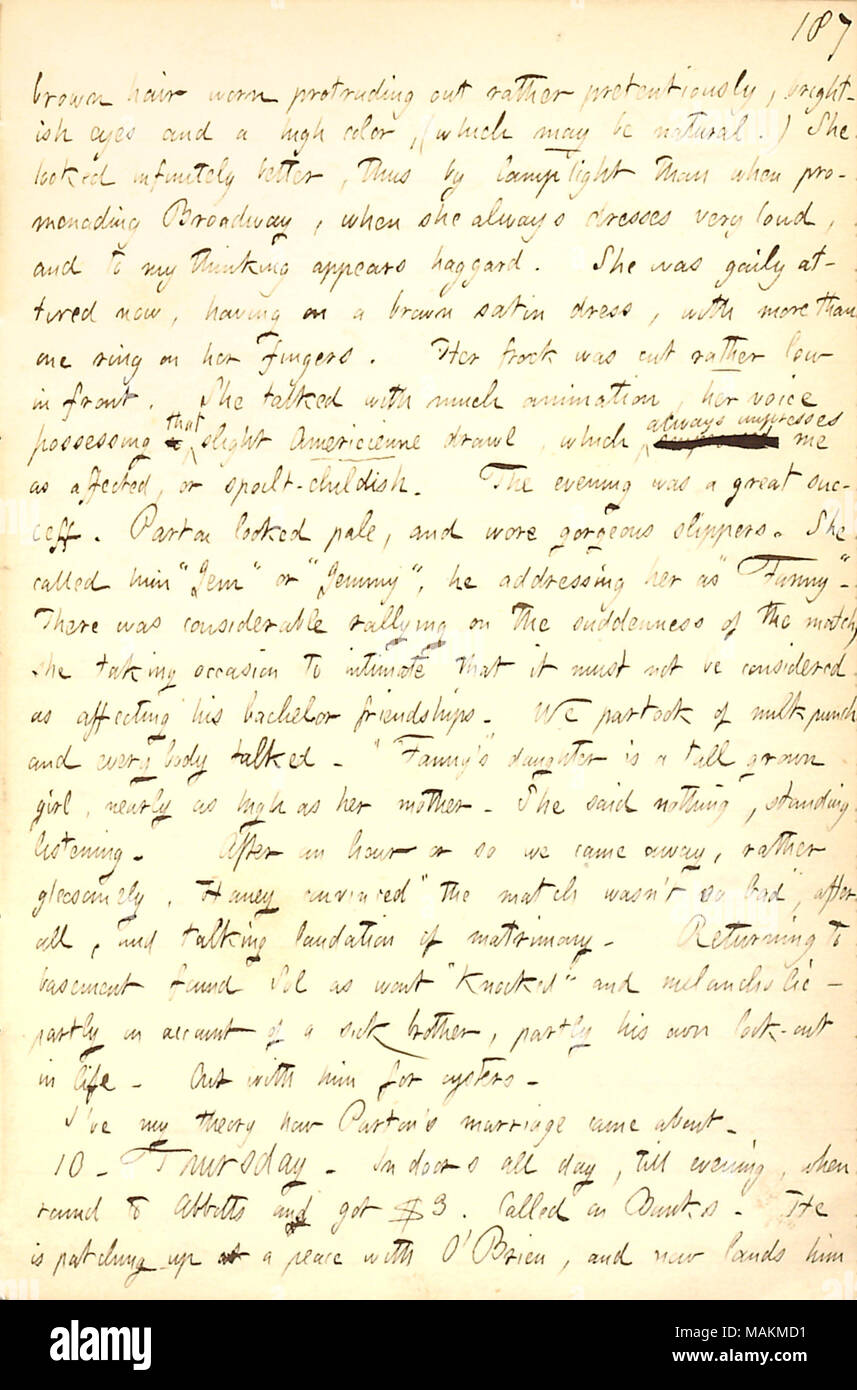 187
brown hair worn protruding out rather pretentiously, bright-
ish eyes and a high color, (which may be natural.) She
looked infinitely better, thus by lamplight than when pro-
menading Broadway, when she always dresses very loud,
and to my thinking appears haggard. She was gaily at-
tired now, having on a brown satin dress, with more than
one ring on her fingers. Her frock was cut rather low
in front. She talked with much animation, her voice
possessing that slight Americienne drawl, which always impresses me
as affected, or spoilt-childish. The evening was a great suc-
cess. Parton looked pale, and wore gorgeous slippers. She
called him "Jem" or "Jemmy", he addressing her as "Fanny"-
There was considerable rallying on the suddenness of the match,
she taking occasion to intimate that it must not be considered
as affecting his bachelor friendships. We partook of milk punch
and every body talked. "Fanny's" daughter is a tall grown
girl, nearly as high as her mother. She said nothing, standing
listening. After an hour or so we came away, rather
gleesomely, Haney convinced "the match wasn't so bad", after
all, and talking laudation of matrimony. Returning to
basement found Sol as wont "knocked" and melancholic -
partly on account of a sick brother, partly his own look-out
in life. Out with him for oysters.
I've my theory how Parton's marriage came about.
10. Thursday. In doors all day, till evening, when
round to Abbotts and got $3. Called on Banks. He
is patching up a peace with O'Brien, and now lauds him
alamy
Image ID: MAKMD1
www.alamy.com